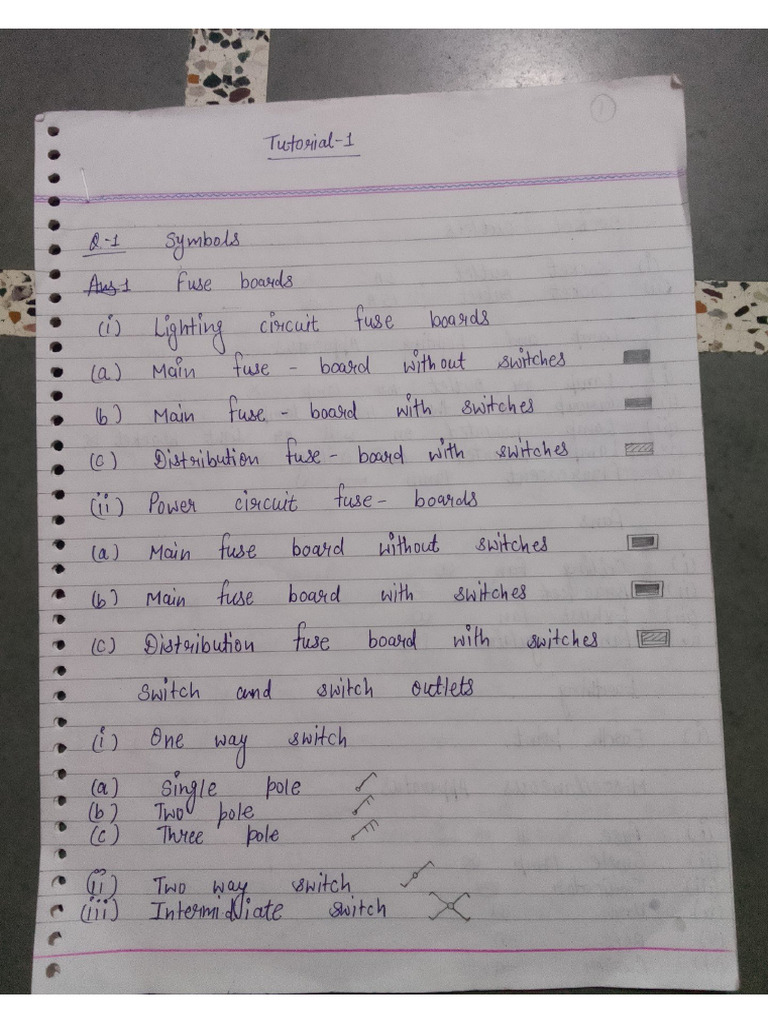 1
Tutorial-1
Q-1 Symbols
Ans-1 Fuse boards
(i) Lighting circuit fuse boards
(a) Main fuse - board without switches
(b) Main fuse - board with switches
(c) Distribution fuse - board with switches
(ii) Power circuit fuse - boards
(a) Main fuse board without switches
(b) Main fuse board with switches
(c) Distribution fuse board with switches
Switch and switch outlets
(i) One way switch
(a) Single pole
(b) Two pole
(c) Three pole
(ii) Two way switch
(iii) Intermidiate switch